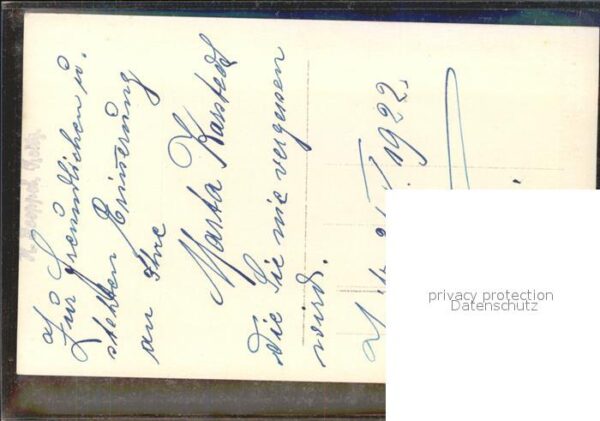 Zur freundlichen u.
steten Erinnerung
an Ihre
Marta Karstedt
die Sie nie vergessen
wird.
1922.
privacy protection
Datenschutz